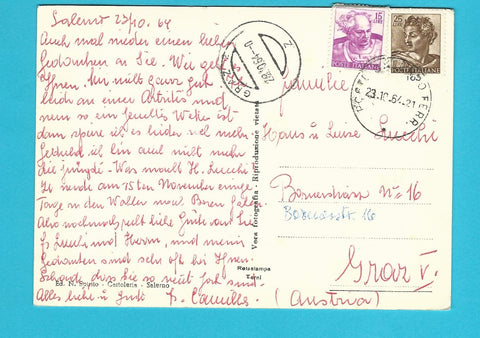 Salerno 23/10. 64
Auch mal wieder einen lieben
Gedanken an Sie. Wie geht es
Ihnen. Mir nicht ganz gut
leide an einer Artritis und
wenn so ein Wetter ist
dann spüre ich es leider noch mehr
Geduld ich bin auch nicht mehr
die jüngste. Was macht H. Lucchi
Ich werde am 15ten November einige
Tage in der Nähe Bozen
Also nochmals recht liebe Grüße von Sie
Fr. Lucchi und Herrn, und meine
Gedanken sind sehr oft bei Ihnen
Schade dass Sie so weit fort sind.
Alles liebe u gute Fr. Camilla
Ed. N. Spinto - Cartoleria - Salerno
Vera fotografia - Riproduzione vietata
Reisstampa
Terni
GRAZ
28.X.64
2
15
POSTE ITALIANE
25
POSTE ITALIANE
FERR.
23.10.64.21
Familie
Hans u Luise Lucchi
No 16
16
Graz V.
(Austria)